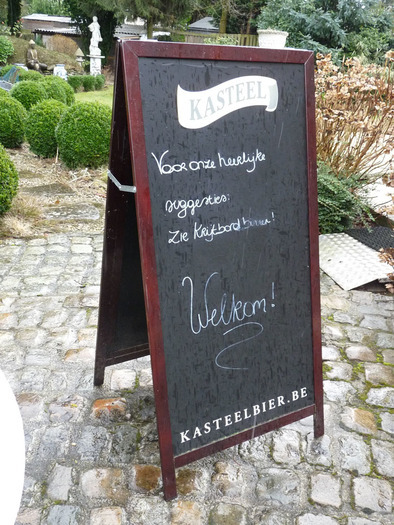 KASTEEL
Voor onze heerlijke
suggesties:
Zie Krijtbord binnen!
Welkom!
KASTEELBIER.BE